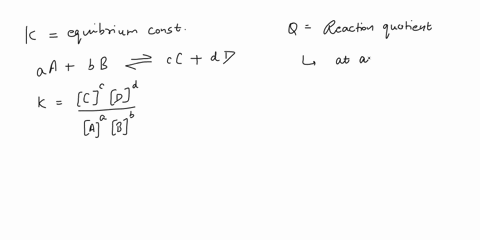 K = equibrium const.
aA + bB ⇌ cC + dD
K = [C]^c [D]^d / [A]^a [B]^b
Q = Reaction quotient
↳ at a